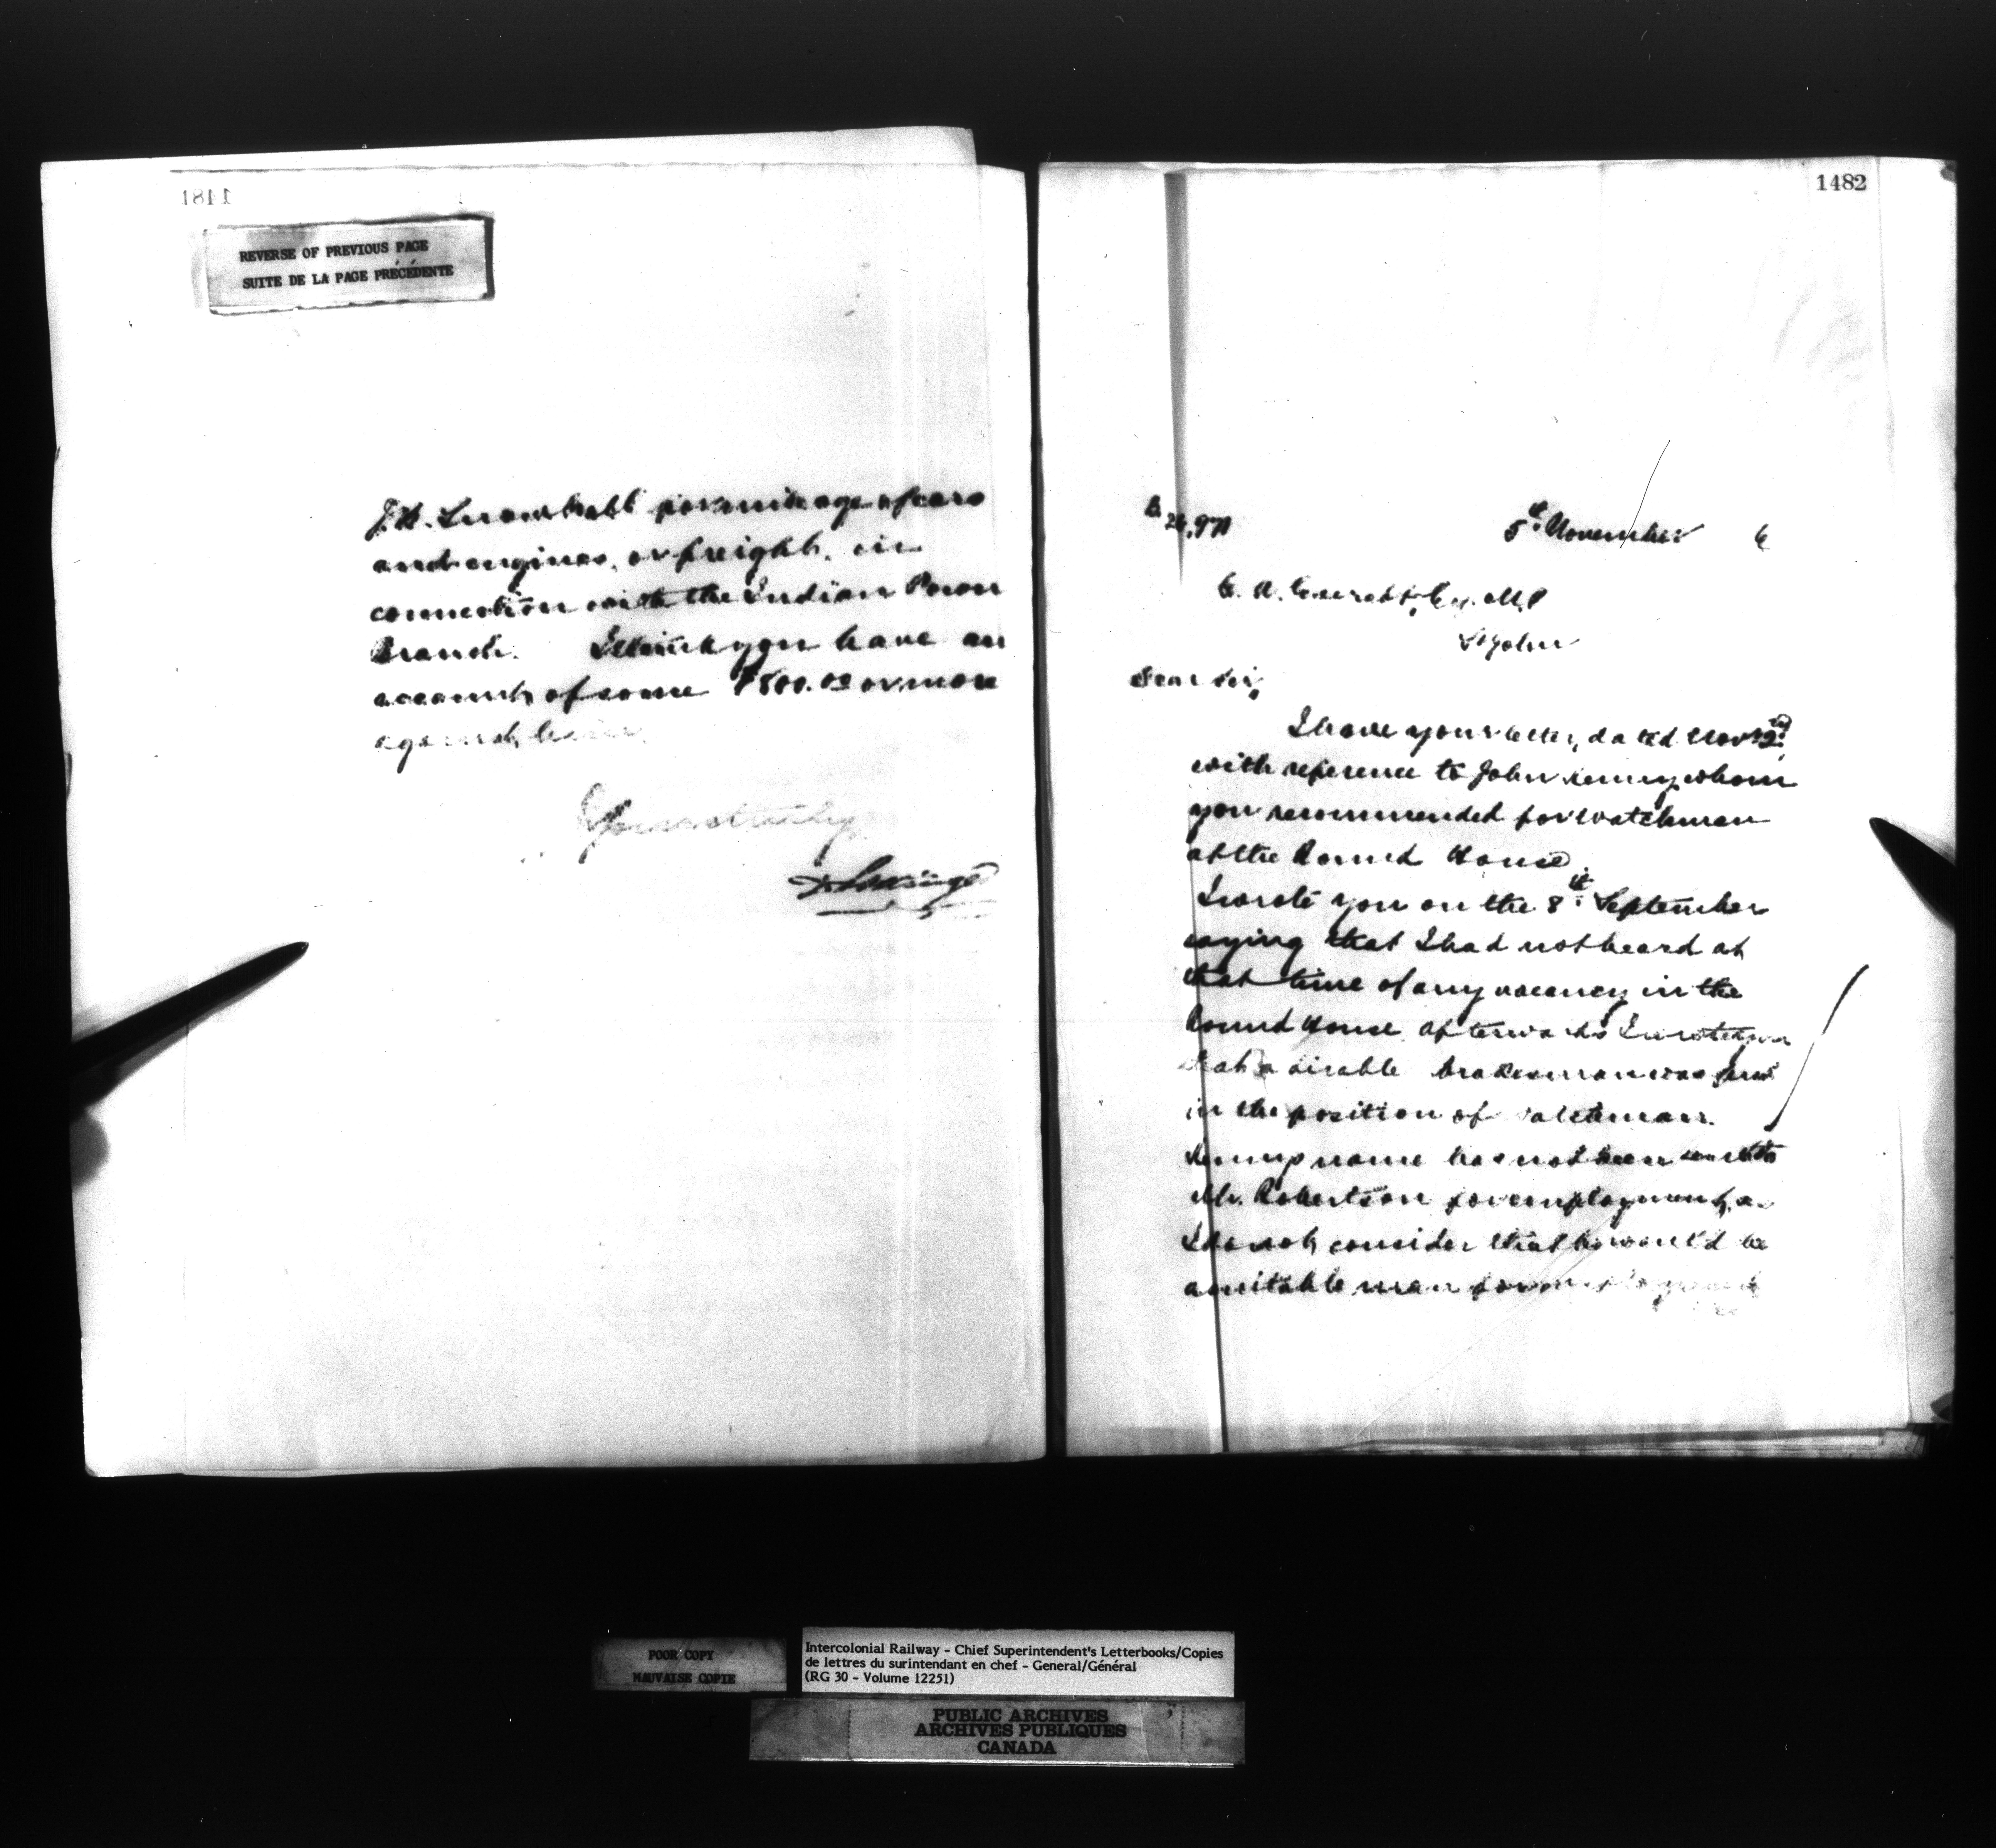 1481
REVERSE OF PREVIOUS PAGE
SUITE DE LA PAGE PRÉCÉDENTE
J.B. Snowball for mileage of cars
and engines, or freight, in
connection with the Indian Town
Branch. I think you have an
account of some $800.00 or more
against him.
Yours truly
1482
5th November 6
C. A. Everett, Esq. M.P
St John
Dear Sir,
I have your letter, dated Nov 2nd,
with reference to John Kemp whom
you recommended for watchman
at the Round House.
I wrote you on the 8th September
saying that I had not heard at
that time of any vacancy in the
Round House. Afterwards I wrote you
that a disable brakesman was
in the position of watchman.
Kemp name has not been sent to
Mr. Robertson for employment, as
I do not consider that he would be
a suitable man for employment
POOR COPY
MAUVAISE COPIE
Intercolonial Railway - Chief Superintendent's Letterbooks/Copies
de lettres du surintendant en chef - General/Général
(RG 30 - Volume 12251)
PUBLIC ARCHIVES
ARCHIVES PUBLIQUES
CANADA